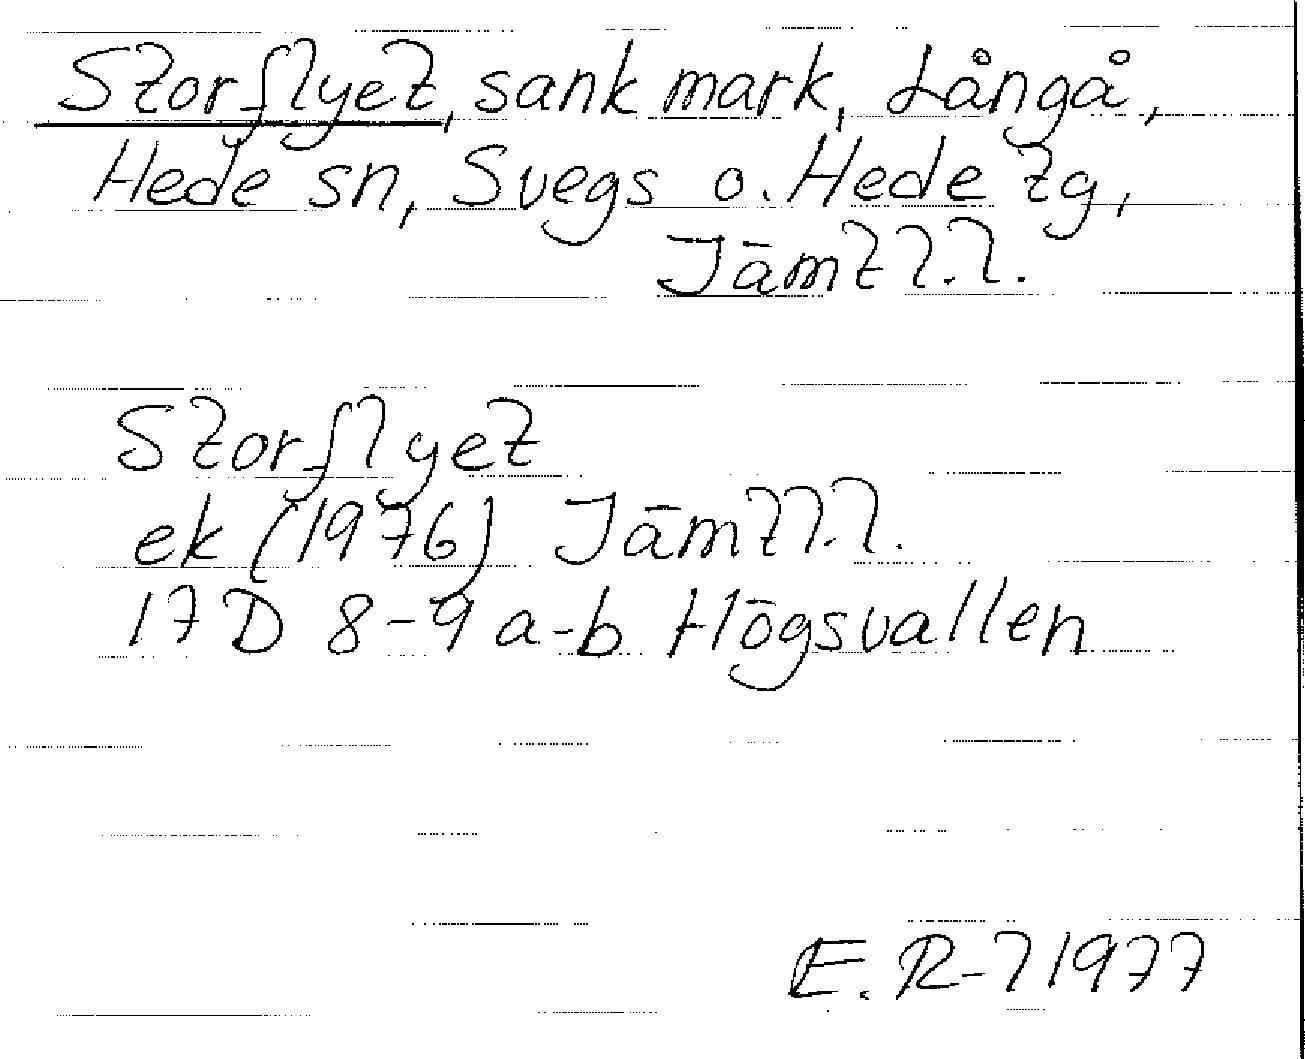 Storflyet, sank mark, Långå,
Hede sn, Svegs o. Hede tg,
Jämtl.l.
Storflyet
ek (1976) Jämtl.l.
17D 8-9 a-b Högsvallen
E. R-l 1977